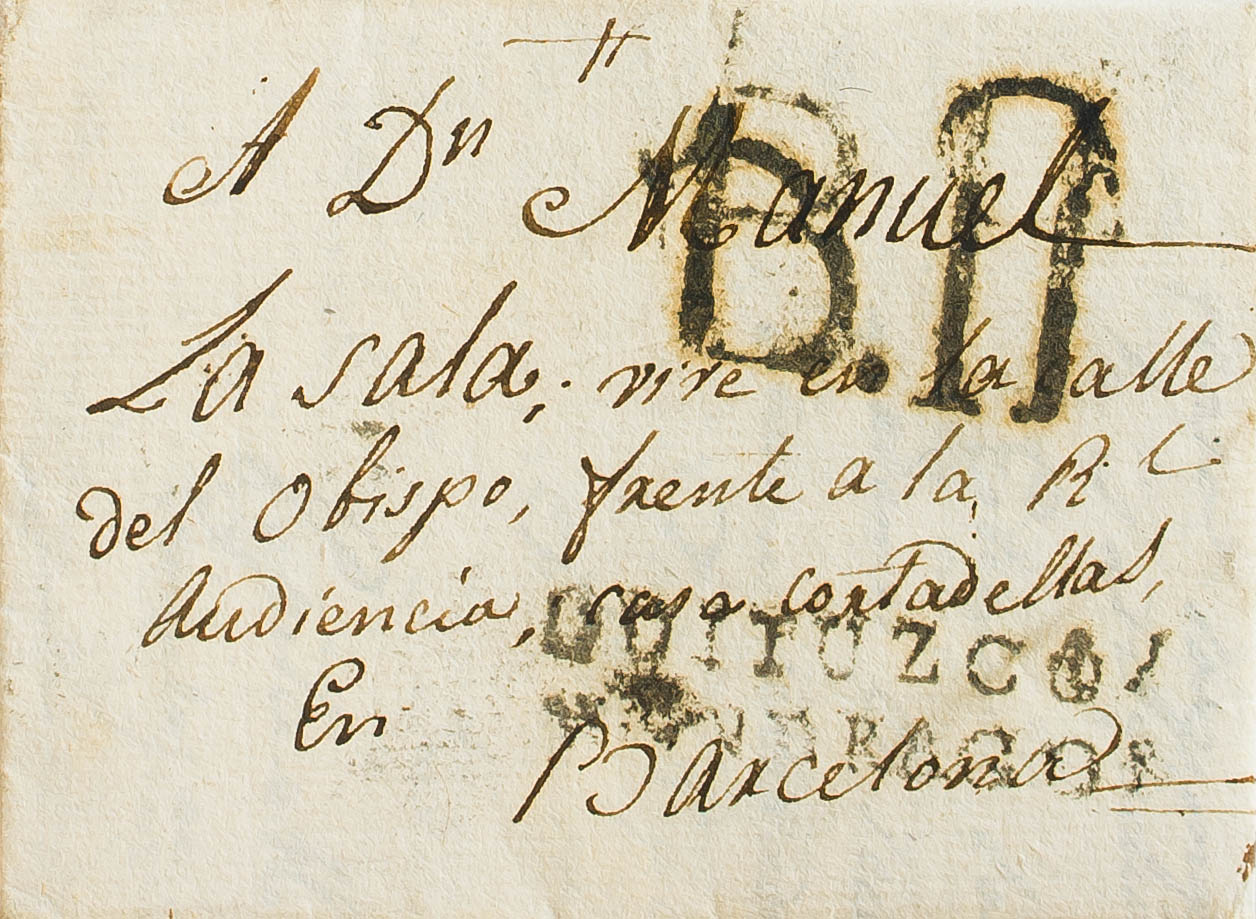 A Dn Manuel
La sala, vive en la calle
del Obispo, frente a la Rl
Audiencia, casa cortadellas,
En
Barcelona